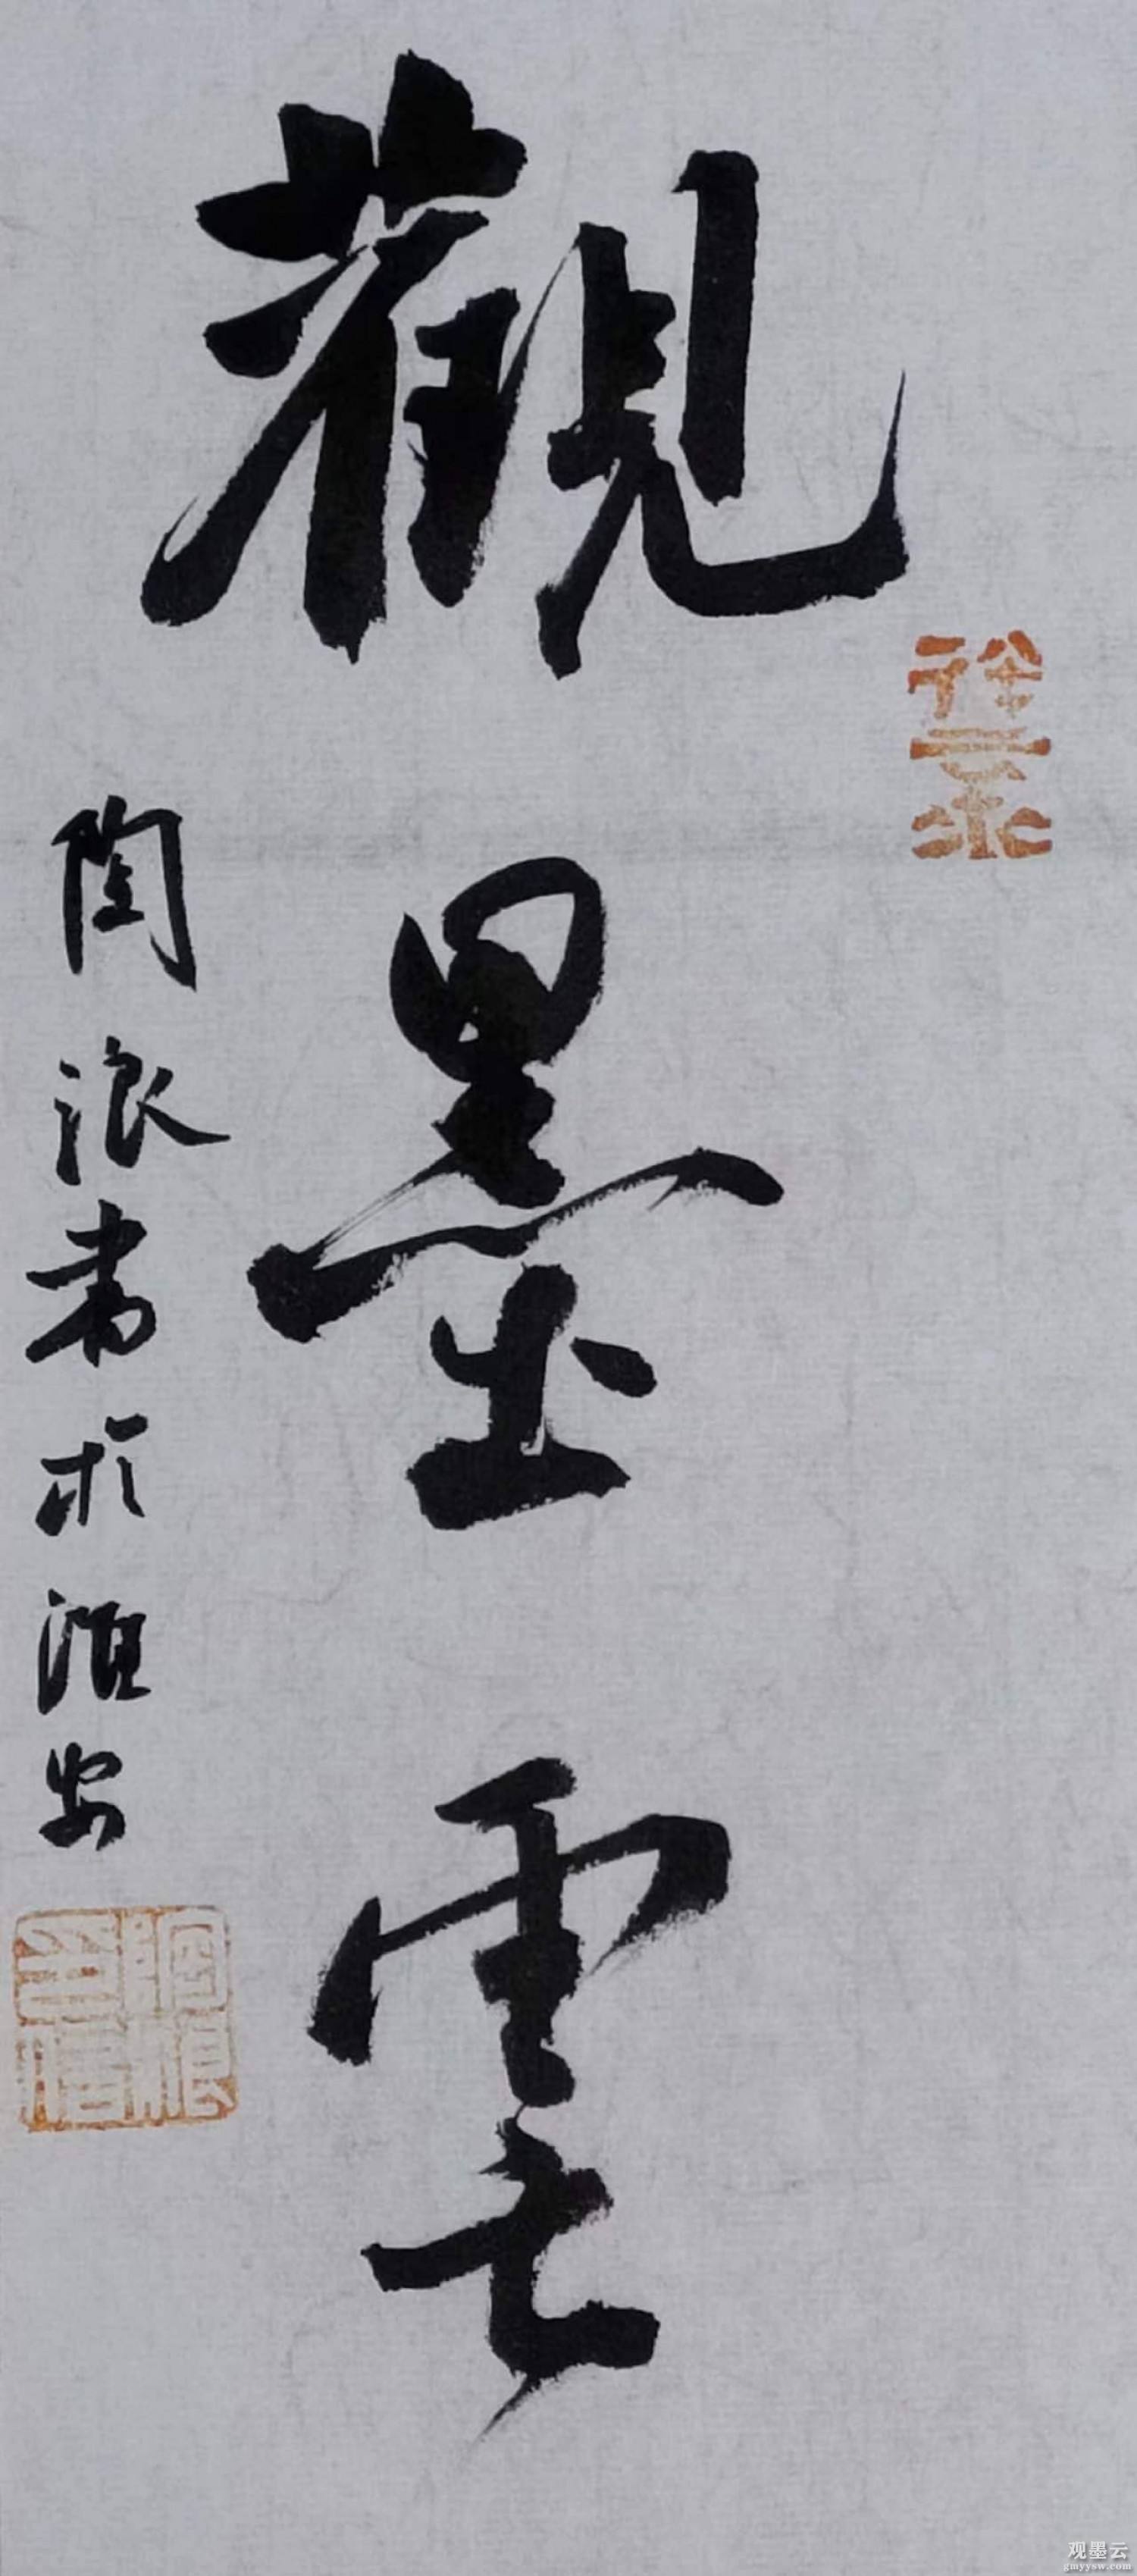 觀墨雲
閆浪書於淮安
观墨云
gmyysw.com